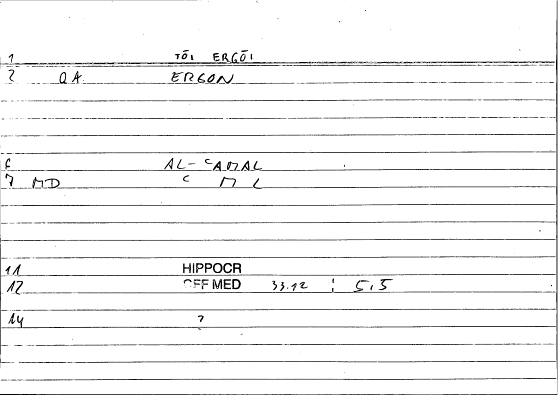 1 TŌI ERGŌI
2 QA ERGON
6 AL-ʿAMAL
7 MD ʿ M L
11 HIPPOCR
12 OFF MED 33.12 : 5,5
14 ?